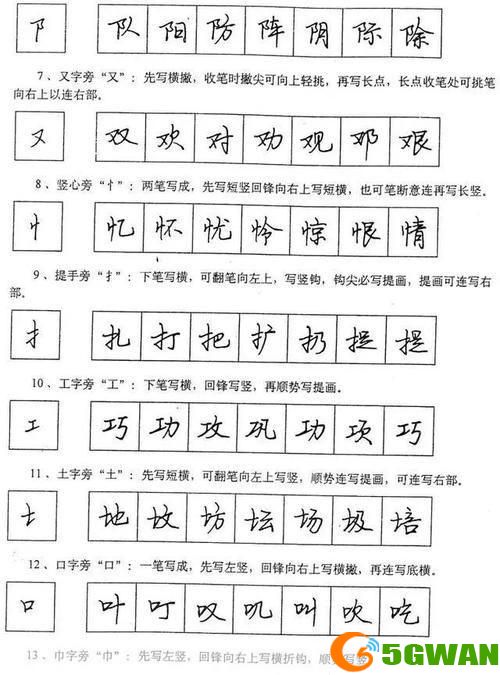 阝 队 阳 防 阵 阴 际 除
7、又字旁“又”：先写横撇，收笔时撇尖可向上轻挑，再写长点，长点收笔处可挑笔
向右上以连右部。
又 双 欢 对 劝 观 邓 艰
8、竖心旁“忄”：两笔写成，先写短竖回锋向右上写短横，也可笔断意连再写长竖。
忄 忆 怀 忧 怜 惊 恨 情
9、提手旁“扌”：下笔写横，可翻笔向左上，写竖钩，钩尖必写提画，提画可连写右
部。
扌 扎 打 把 扩 扔 捉 提
10、工字旁“工”：下笔写横，回锋写竖，再顺势写提画。
工 巧 功 攻 巩 功 项 巧
11、土字旁“土”：先写短横，可翻笔向左上写竖，顺势连写提画，可连写右部。
土 地 坟 坊 坛 场 圾 培
12、口字旁“口”：一笔写成，先写左竖，回锋向右上写横撇，再连写底横。
口 叶 叮 叹 叽 叫 吹 吃
13、巾字旁“巾”：先写左竖，回锋向右上写横折钩，顺势写竖
5GWAN